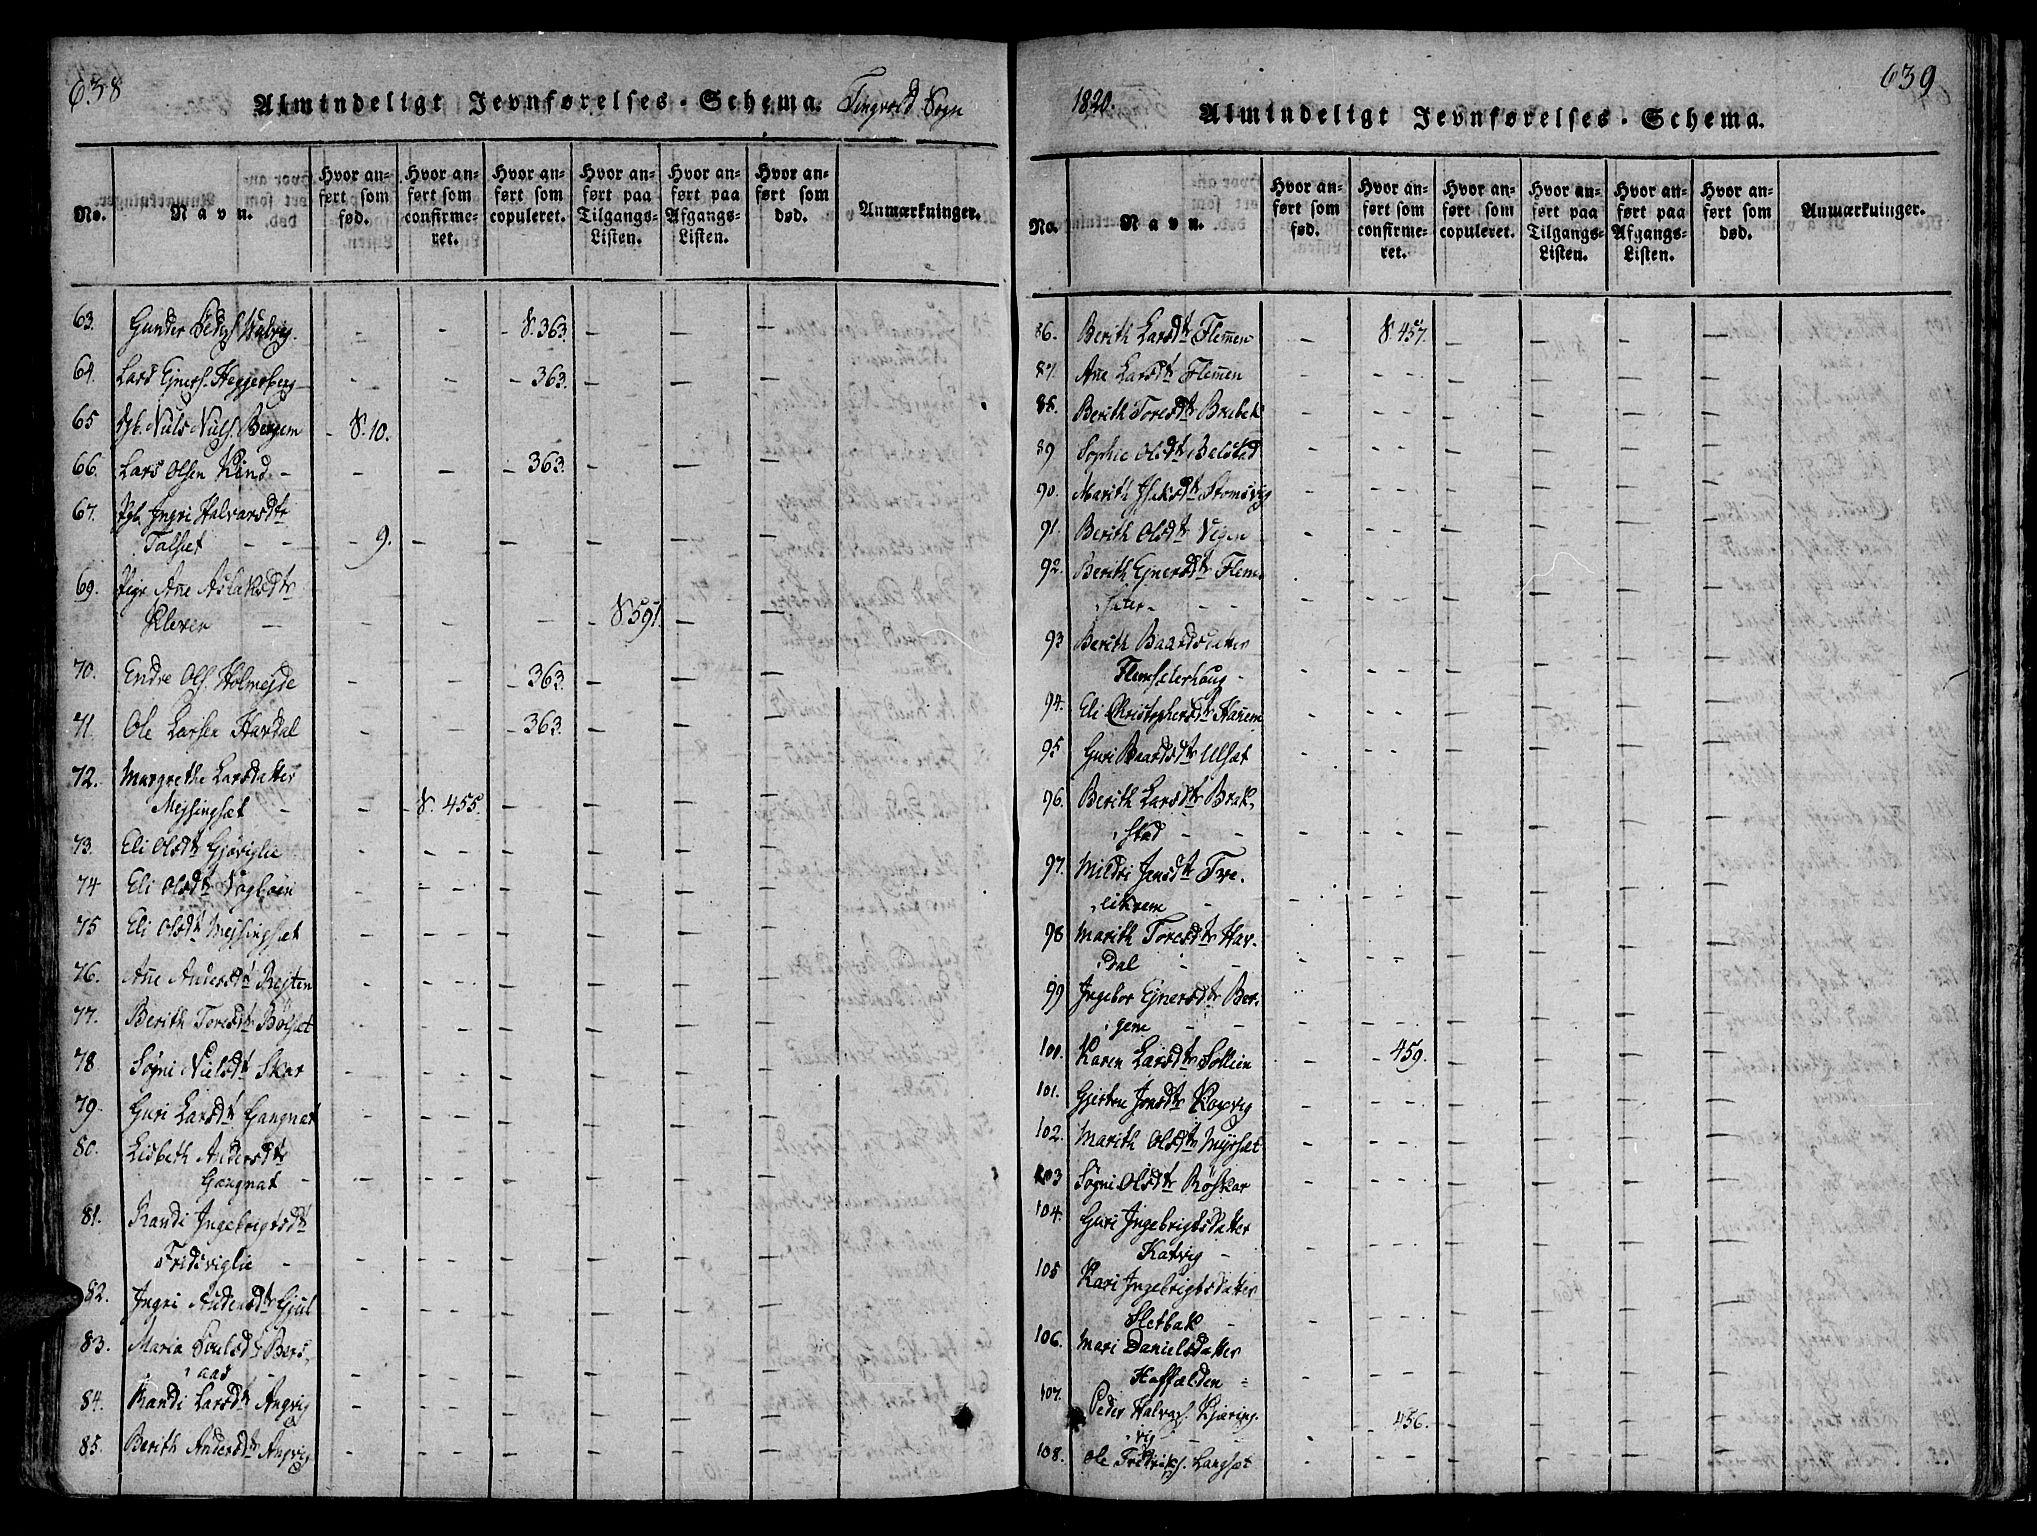 638
Almindeligt Jevnførelses-Schema. Tingvold Sogn
No.
Navn.
Hvor anført som fød.
Hvor anført som confirmeret.
Hvor anført som copuleret.
Hvor anført paa Tilgangs-Listen.
Hvor anført paa Afgangs-Listen.
Hvor anført som død.
Anmærkninger.
63. Gunder Peders. Halvig. - - S. 363. - - -
64. Lars Ejners. Heggerberg - - - 363. - - -
65 Niels Niels. Bergem - S. 10.
66. Lars Olsen Rind - - - - 363. - - -
67. Pgb. Ingri Halvorsdtr
Talset - - - 9. - - - - -
69. Pige Ane Aslaksdtr
Kleven - - - - S. 591. - -
70. Endre Ols. Holmejde - - - 363. - - -
71. Ole Larsen Hardal - - - 363. -
72. Margrethe Larsdatter
Mejsingset - - - S. 455. - - - -
73. Eli Olsdtr Gjøviglie - - - - - - -
74 Eli Olsdtr Vogløen
75 Eli Olsdtr Mejsingset
76. Ane Andersdtr Rejten
77. Berith Toresdtr Bölset
78. Søgni Nielsdtr Skar
79. Guri Larsdtr Gangnat
80. Lisbeth Andersdtr
Gangnat -
81. Randi Ingebrigtsdtr
Fridsviglie -
82. Ingri Andersdtr Gjul
83. Maria Poulsdtr Bers-
aas -
84. Randi Larsdtr Angvig
85. Berith Andersdtr Angvig
1820.
Almindeligt Jevnførelses-Schema.
639
No.
Navn.
Hvor anført som fød.
Hvor anført som confirmeret.
Hvor anført som copuleret.
Hvor anført paa Tilgangs-Listen.
Hvor anført paa Afgangs-Listen.
Hvor anført som død.
Anmærkninger.
86. Berith Larsdtr Flemen - S. 457. - - - -
87. Ane Larsdtr Flemen
88. Berith Toresdtr Brubek
89 Sophie Olsdtr Balstad
90. Marith Isaksdtr Stomsvig
91. Berith Olsdtr Vigen -
92. Berith Ejnersdtr Flem-
seter - - -
93 Berith Baardsdatter
Flemseterhoug -
94. Eli Christophersdtr Hanem
95 Guri Baardsdtr Ulset
96. Berith Larsdtr Brak-
stad - -
97. Mildri Jonsdtr Tve-
eikrem -
98 Marith Toresdtr Har-
dal - -
99 Ingebor Ejnersdtr Ber-
gem - -
100. Karen Larsdtr Sollien - - 459. - - - -
101. Gjerten Jonsdtr Koxvig
102. Marith Olsdtr Myrset
103 Søgni Olsdtr Röskar
104. Guri Ingebrigtsdatter
Kalvig -
105 Kari Ingebrigtsdatter
Sletbak -
106. Mari Danielsdatter
Haffelden -
107. Peder Halvors. Kjæring-
vig - - - - 456. - - - -
108. Ole Fridriks. Langset